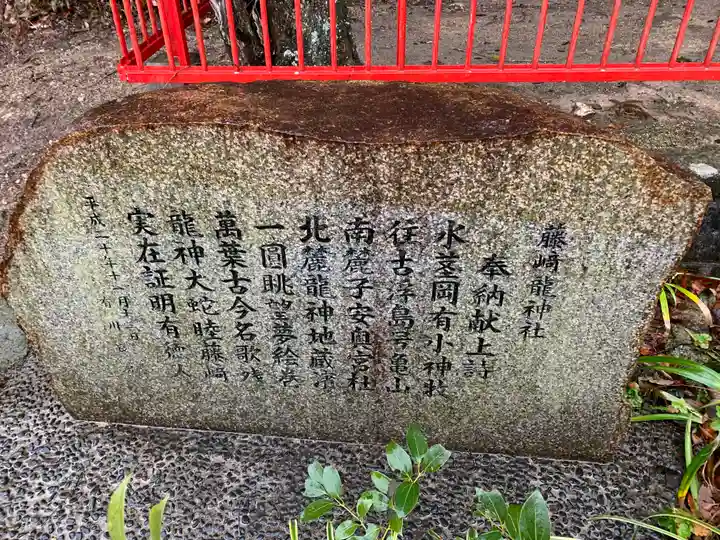 藤崎龍神社
奉納献上詩
水茎岡有小神社
往古浮島号亀山
南麓子安奥宮社
北麓龍神地蔵濱
一圓眺望夢絵巻
萬葉古今名歌残
龍神大蛇睦藤崎
実在証明有徳人
平成二十年十一月十